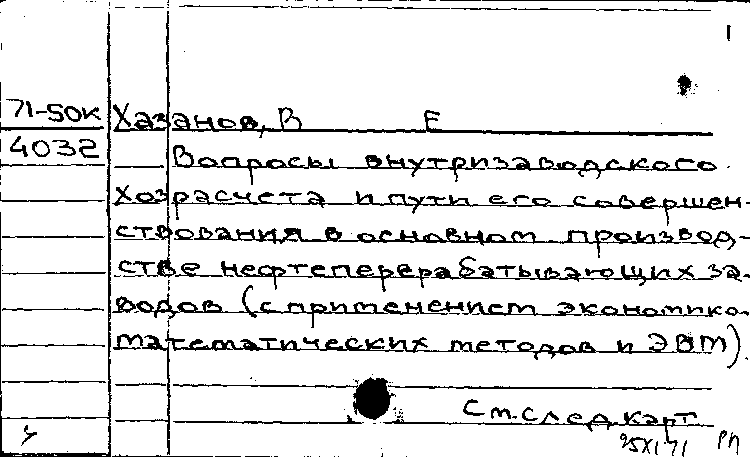 1
71-50к Хазанов, В Е
4032 Вопросы внутризаводского
хозрасчета и пути его совершен-
ствования в основном производ-
стве нефтеперерабатывающих за-
водов (с применением экономико-
математических методов и ЭВМ).
См. след. карт.
25XI71 РП